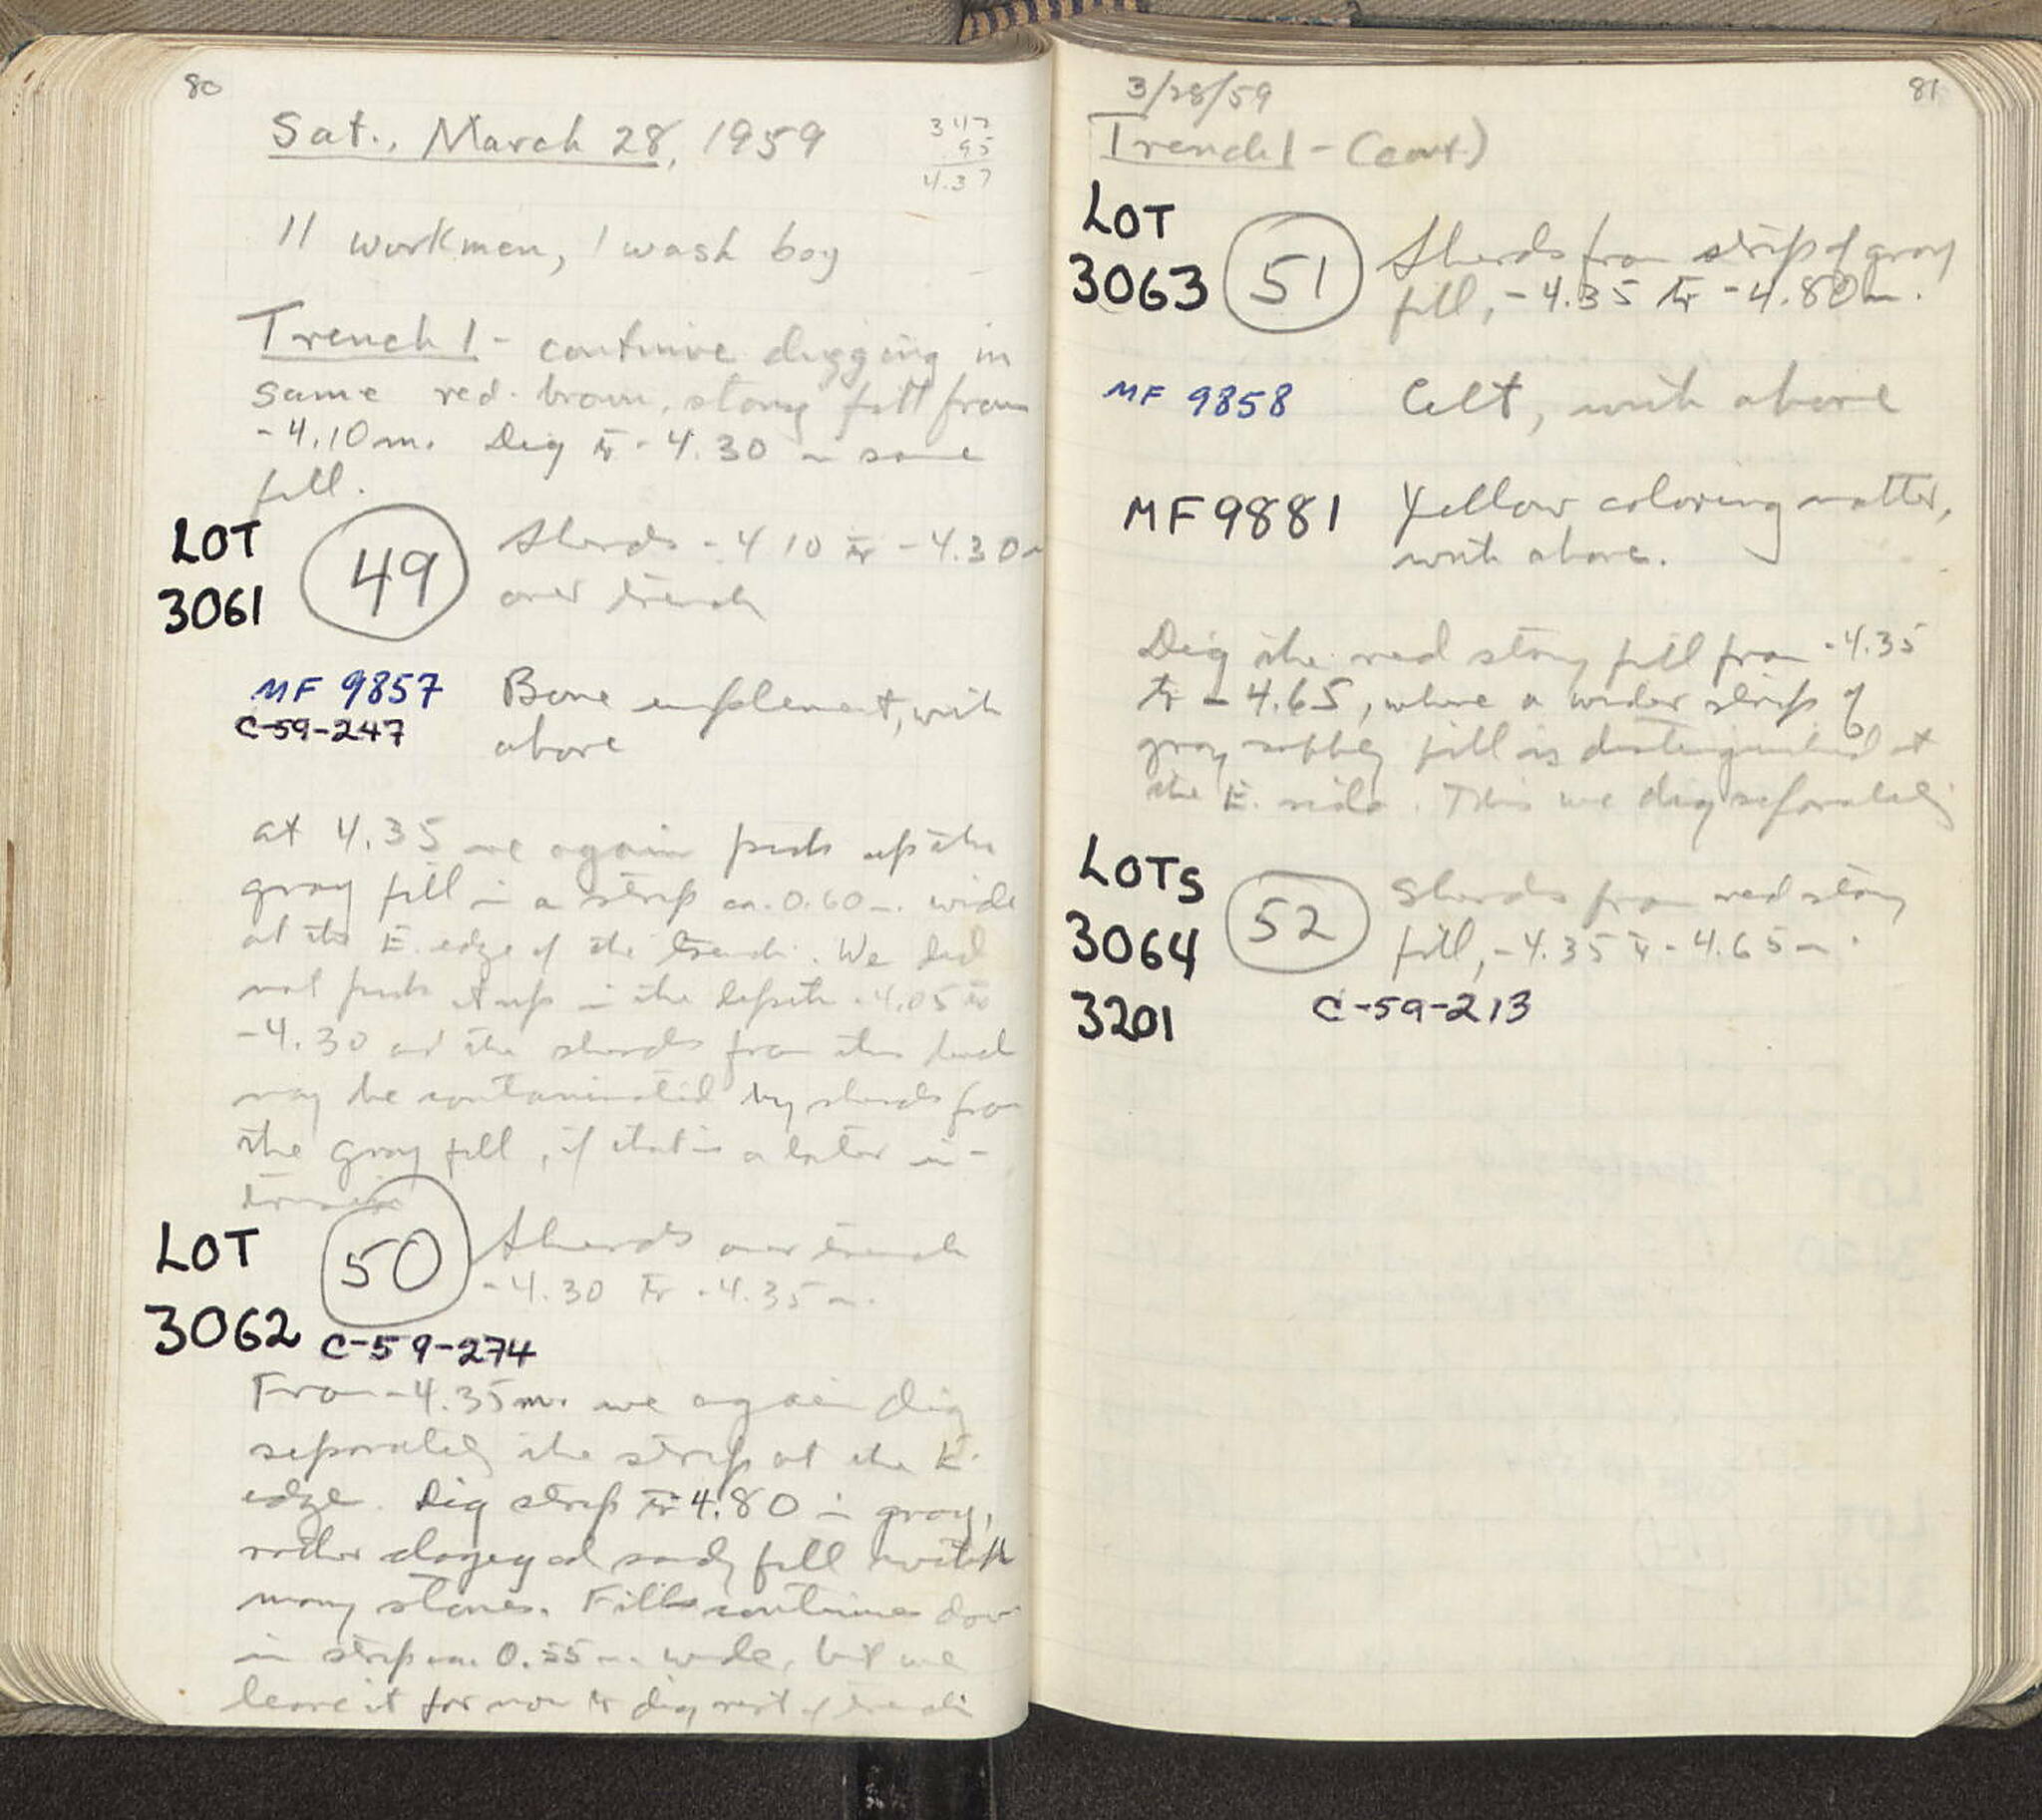 80
Sat., March 28, 1959
3.42
.95
4.37
11 workmen, 1 wash boy
Trench 1 - continue digging in
same red-brown, stony fill from
-4.10 m. Dig to -4.30 in same
fill.
LOT
3061
49
Sherds -4.10 to -4.30 m
over trench
MF 9857
C-59-247
Bone implement, with
above
at 4.35 we again pick up the
gray fill in a strip ca. 0.60 m. wide
at the E. edge of the trench. We did
not pick it up in the depth -4.05 to
-4.30 and the sherds from this level
may be contaminated by sherds from
the gray fill, if that is a later in-
trusion
LOT
3062
50
Sherds over trench
-4.30 to -4.35 m.
C-59-274
From -4.35 m. we again dig
separately the strip at the E.
edge. Dig strip to 4.80 in gray,
rather clayey and sandy fill with
many stones. Fill continues down
in strip ca. 0.55 m. wide, but we
leave it for now to dig rest of trench
81
3/28/59
Trench 1 - (cont.)
LOT
3063
51
Sherds from strip of gray
fill, -4.35 to -4.80 m.
MF 9858
Celt, with above
MF 9881
Yellow coloring matter,
with above.
Dig the red stony fill from -4.35
to -4.65, where a wider strip of
gray rubbly fill is distinguished at
the E. side. This we dig separately
LOTS
3064
3201
52
Sherds from red stony
fill, -4.35 to -4.65 m.
C-59-213